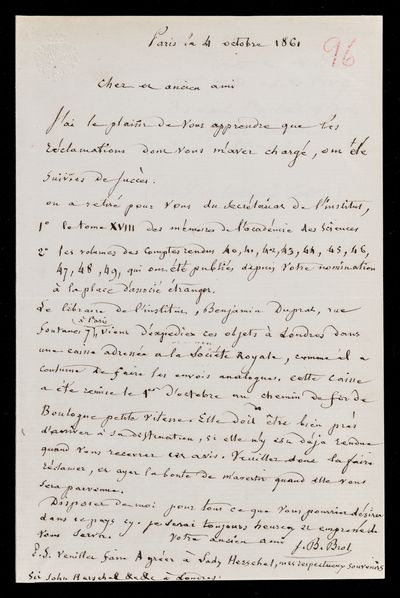 Paris le 4 octobre 1861
96
Cher et ancien ami
J'ai le plaisir de vous apprendre que les
réclamations dont vous m'avez chargé, ont été
suivies de succès.
on a retiré pour vous du secrétariat de l'institut,
1° le tome XVIII des mémoires de l'académie des sciences
2° les volumes des Comptes rendus 40, 41, 42, 43, 44, 45, 46,
47, 48, 49, qui ont été publiés depuis votre nomination
à la place d'associé étranger.
Le libraire de l'institut, Benjamin Duprat, rue
à Paris
Fontanes 7, vient d'expédier ces objets à Londres dans
une caisse adressée a la Société Royale, comme il a
coutume de faire les envois analogues. cette caisse
a été remise le 1er d'octobre au chemin de fer de
Boulogne petite vitesse. Elle doit être bien près
d'arriver à sa destination, si elle n'y est déja rendue
quand vous recevrez cet avis. Veuillez donc la faire
réclamer, et ayez la bonté de m'avertir quand elle vous
sera parvenue.
Disposez de moi pour tout ce que vous pourriez désirer
dans ce pays cy. je serai toujours heureux et empressé de
vous servir. Votre ancien ami J. B. Biot
P.S. Veuillez faire agréer à Lady Herschel, mes respectueux souvenirs
Sir John Herschel à Londres.